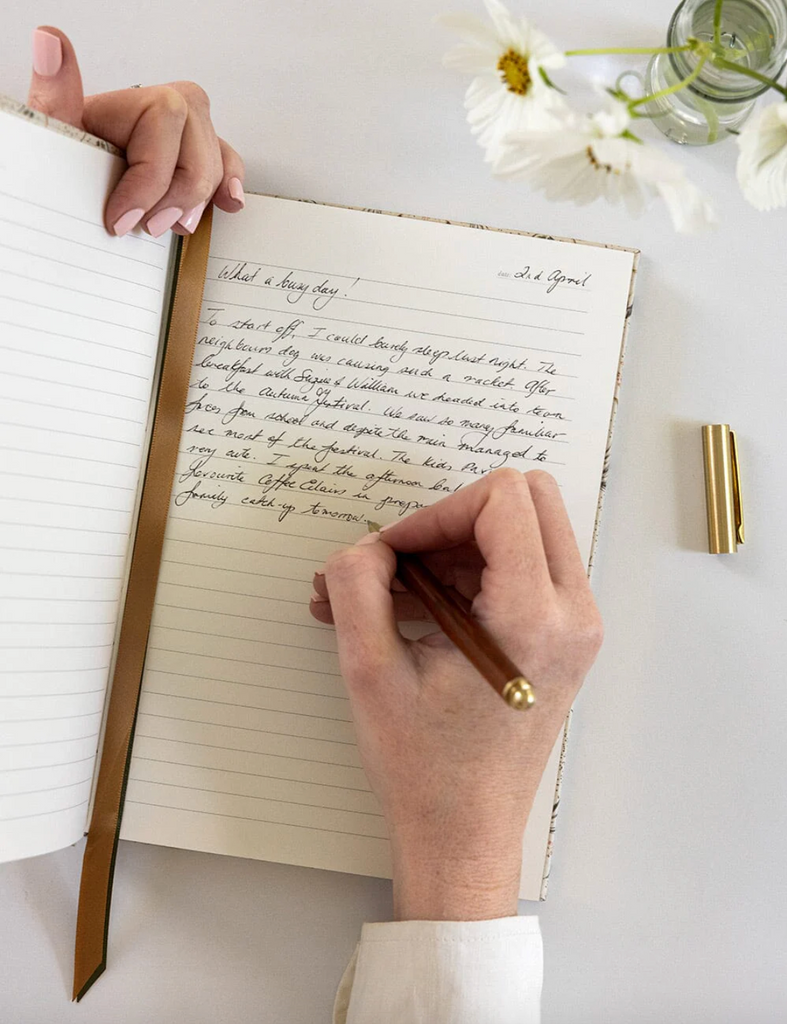 2nd April
What a busy day!
To start off, I could barely sleep last night. The
neighbours dog was causing such a racket. After
breakfast with Suzie & William we headed into town
to the Autumn festival. We saw so many familiar
faces from school and despite the rain managed to
see most of the festival. The kids
very cute. I spent the afternoon
favourite Coffee Eclairs in
family catch-up tomorrow.